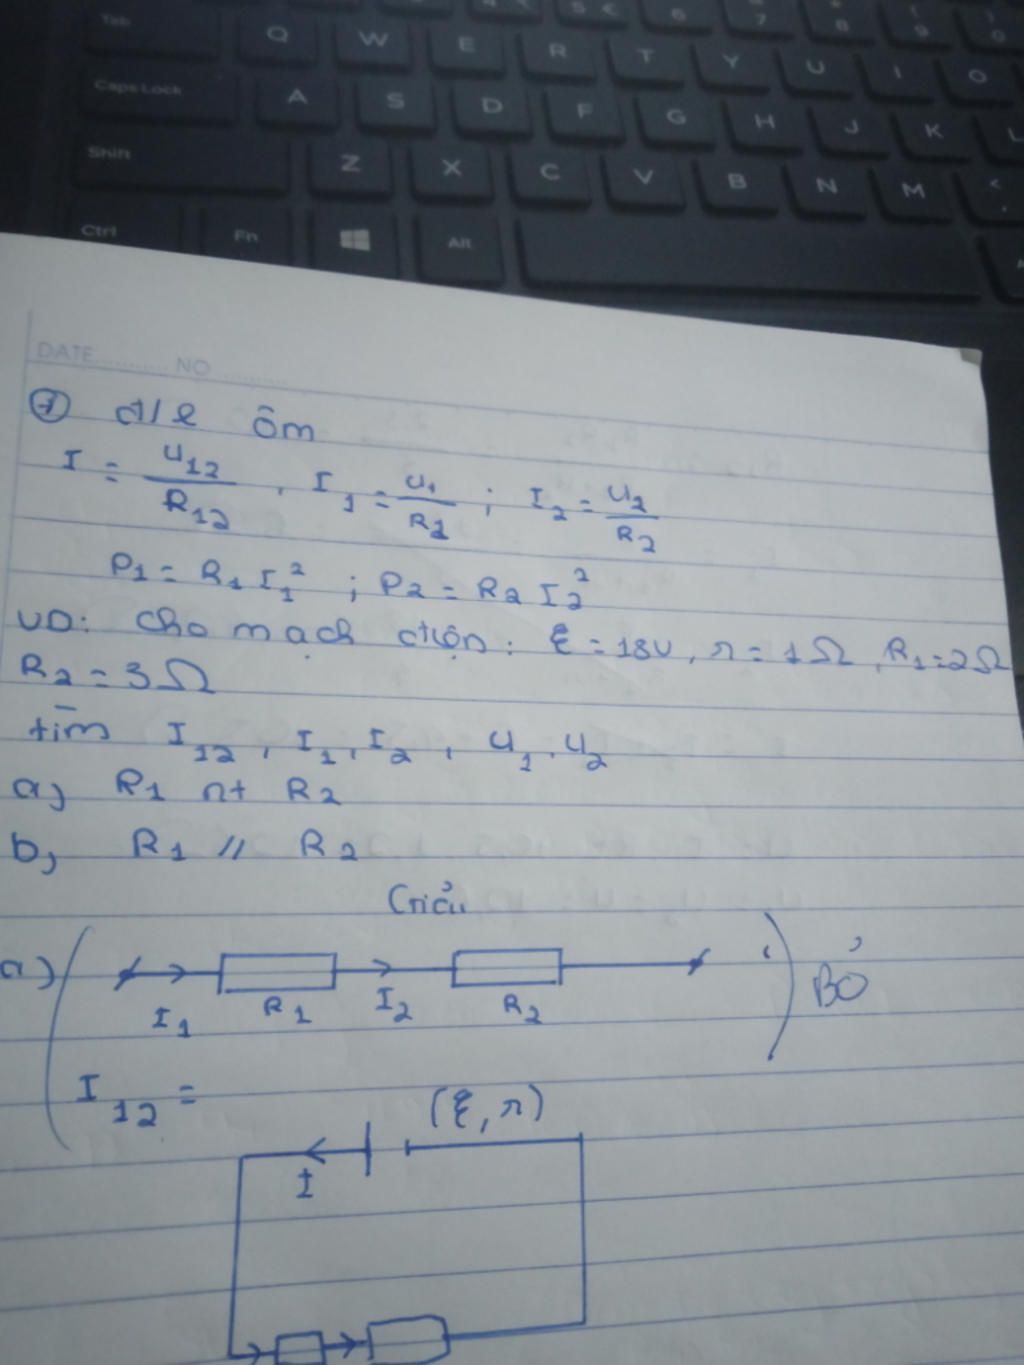 Tab Q W E R T Y U I O
Caps Lock A S D F G H J K L
Shift Z X C V B N M <
Ctrl Fn Alt
DATE NO
đ/l ôm
I = U12/R12, I1 = U1/R1 ; I2 = U2/R2
P1 = R1 I1² ; P2 = R2 I2²
VD: Cho mạch điện: ξ = 18V, r = 1Ω, R1 = 2Ω
R2 = 3Ω
tìm I12, I1, I2, U1, U2
a, R1 nt R2
b, R1 // R2
Giải
a) Bỏ
I1 R1 I2 R2
I12 =
(ξ, r)
I